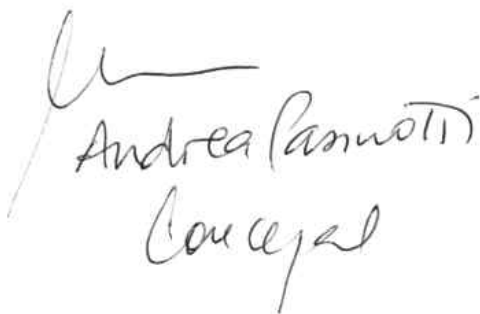 Andrea Pasinotti
Concejal